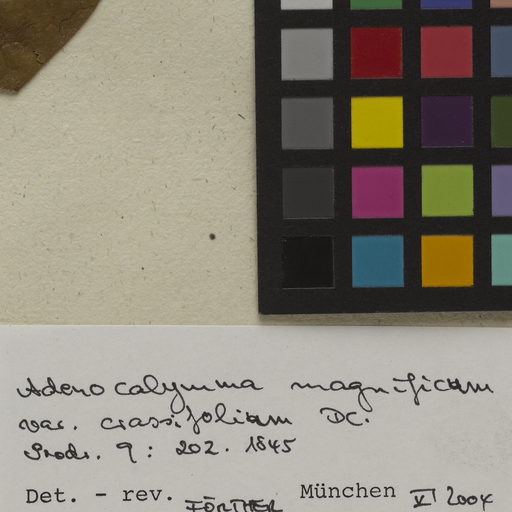 Adenocalymma magnificum
var. crassifolium DC.
Prodr. 9: 202. 1845
Det. - rev. FÖRTHER München VI 2004